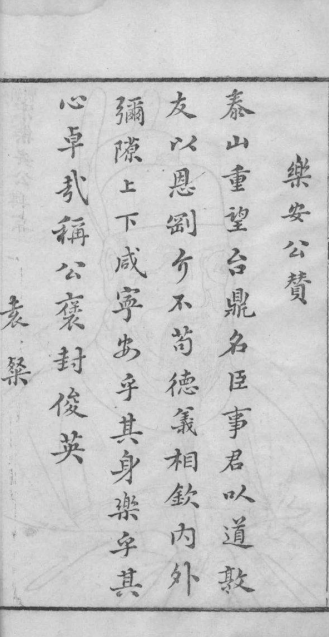 樂安公贊
泰山重望台鼎名臣事君以道敦
友以恩劉介不苟德義相欽内外
彌隙上下咸寧安乎其身樂乎其
心卓㢤稱公褒封俊英
袁燊